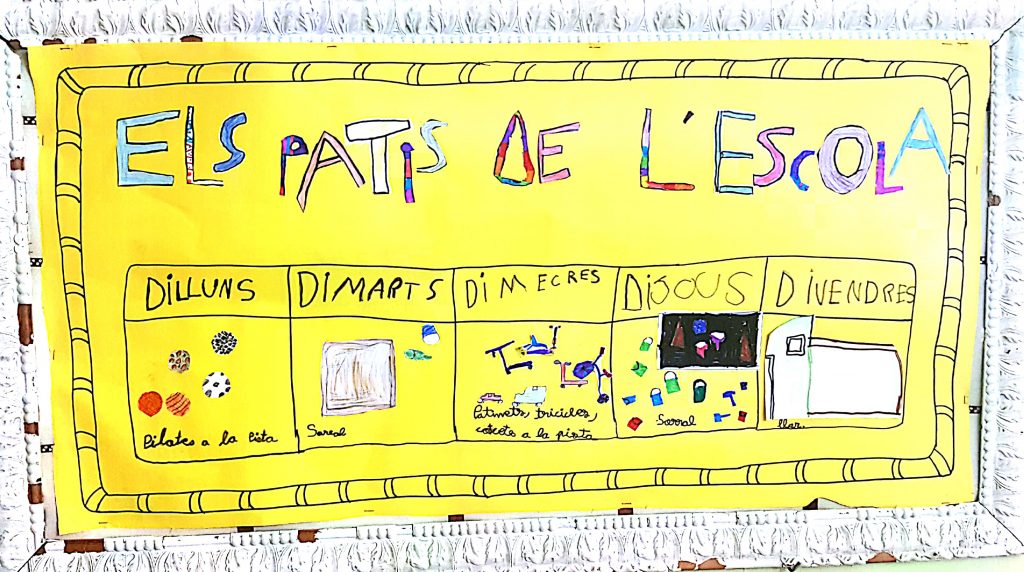 ELS PATiS DE L'ESCOLA
DiLLUNS
DiMARTS
DiMECRES
DiJOUS
DiVENDRES
Pilotes a la pista
Sorral
Patinets, tricicles,
cotxets a la pista
Sorral
llar.